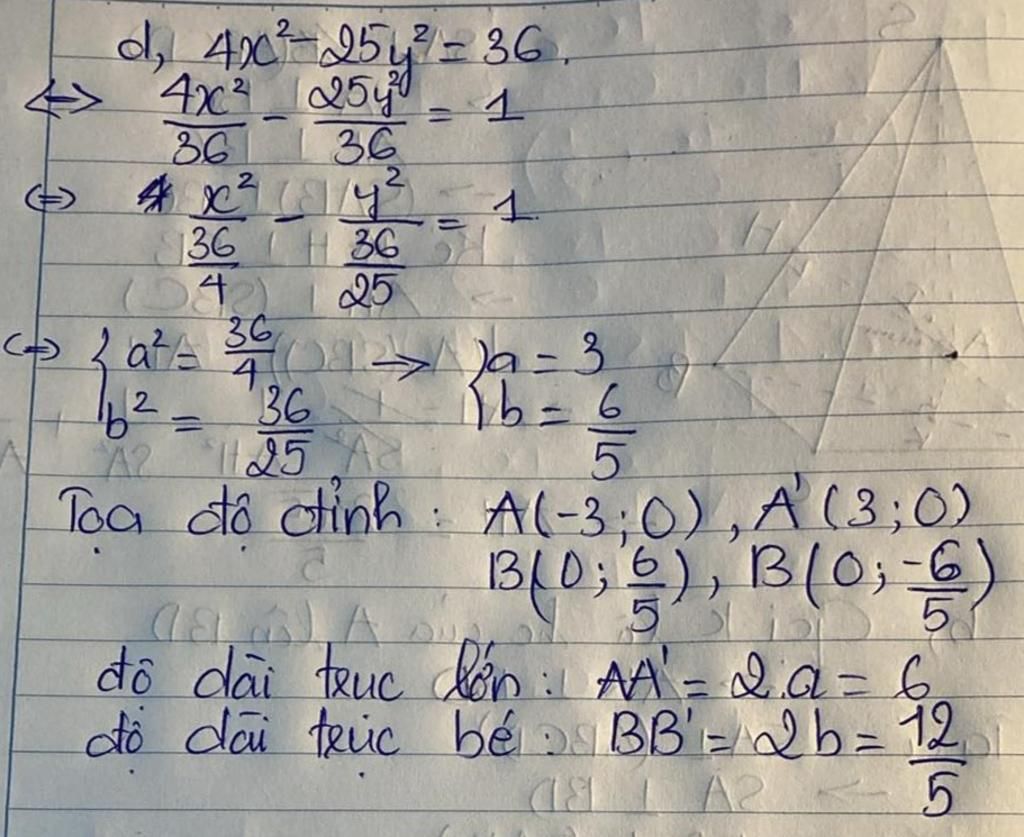 d, 4x² - 25y² = 36.
<=> 4x²/36 - 25y²/36 = 1
<=> x²/(36/4) - y²/(36/25) = 1
<=> { a² = 36/4 → { a = 3
b² = 36/25 b = 6/5
Tọa độ đỉnh : A(-3;0), A'(3;0)
B(0; 6/5), B(0; -6/5)
độ dài trục lớn : AA' = 2.a = 6
độ dài trục bé : BB' = 2b = 12/5